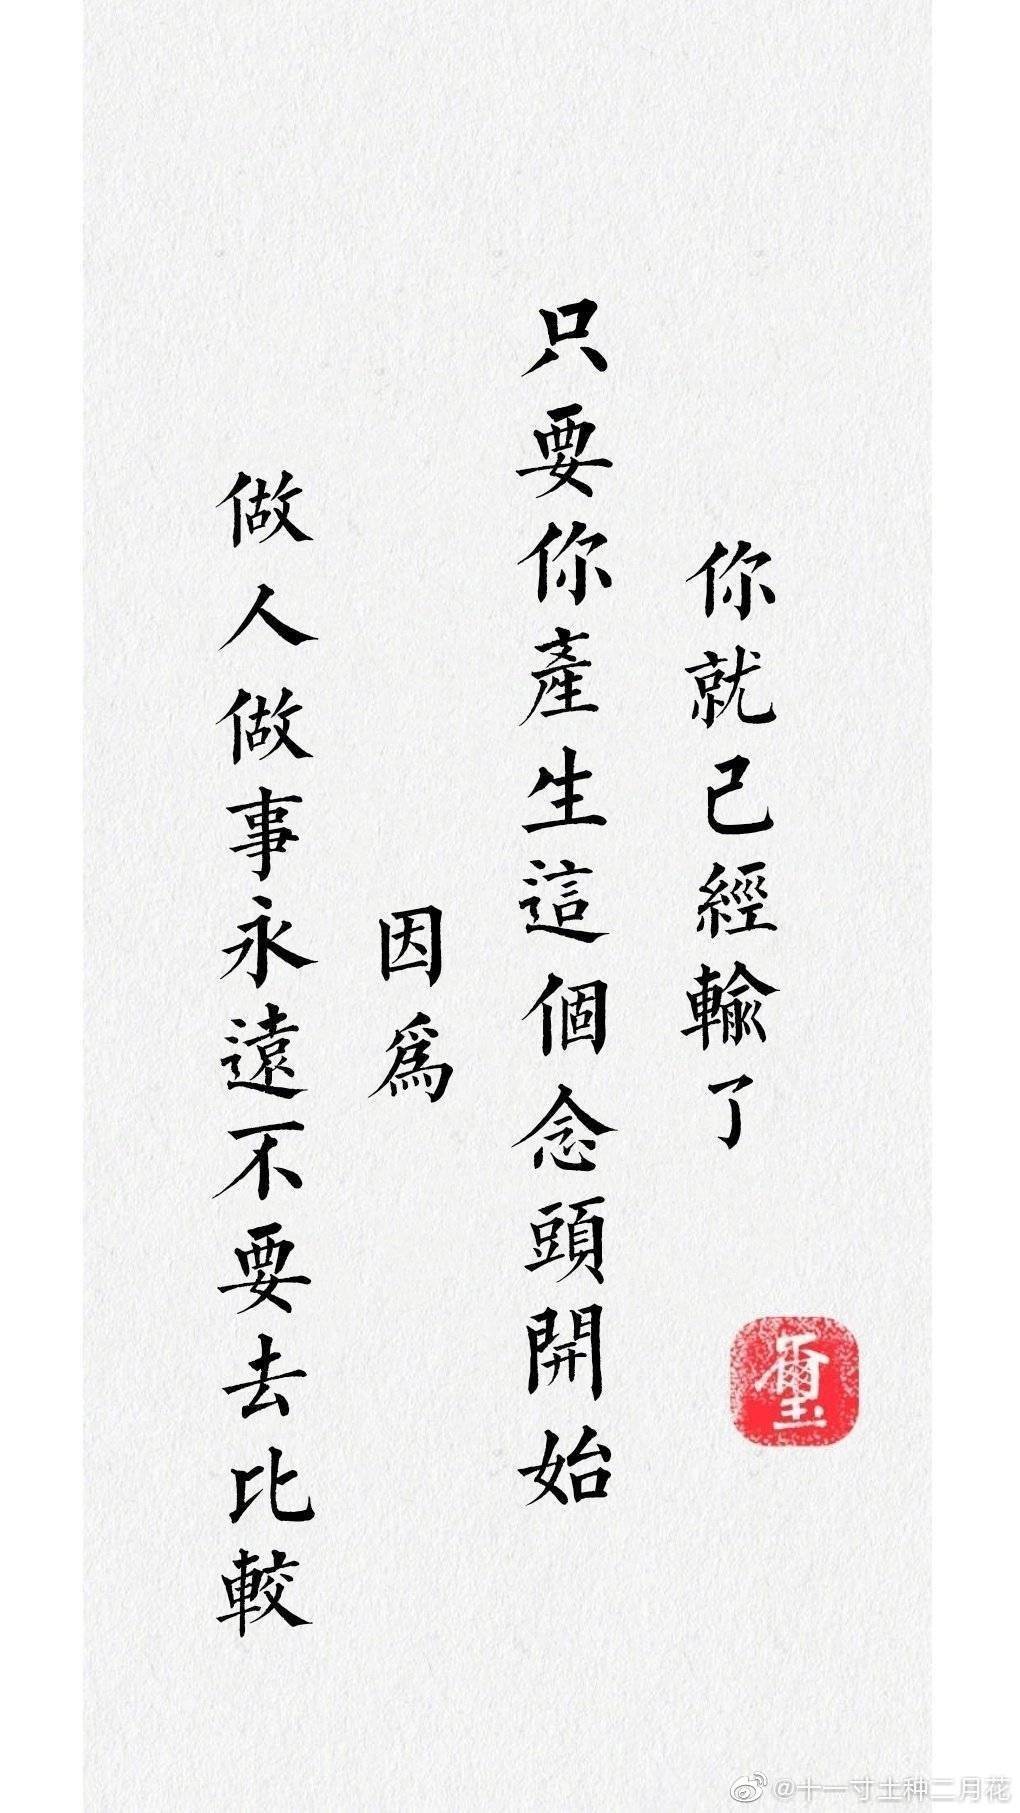 做人做事永遠不要去比較
因爲
只要你產生這個念頭開始
你就已經輸了
璽
@十一寸土种二月花